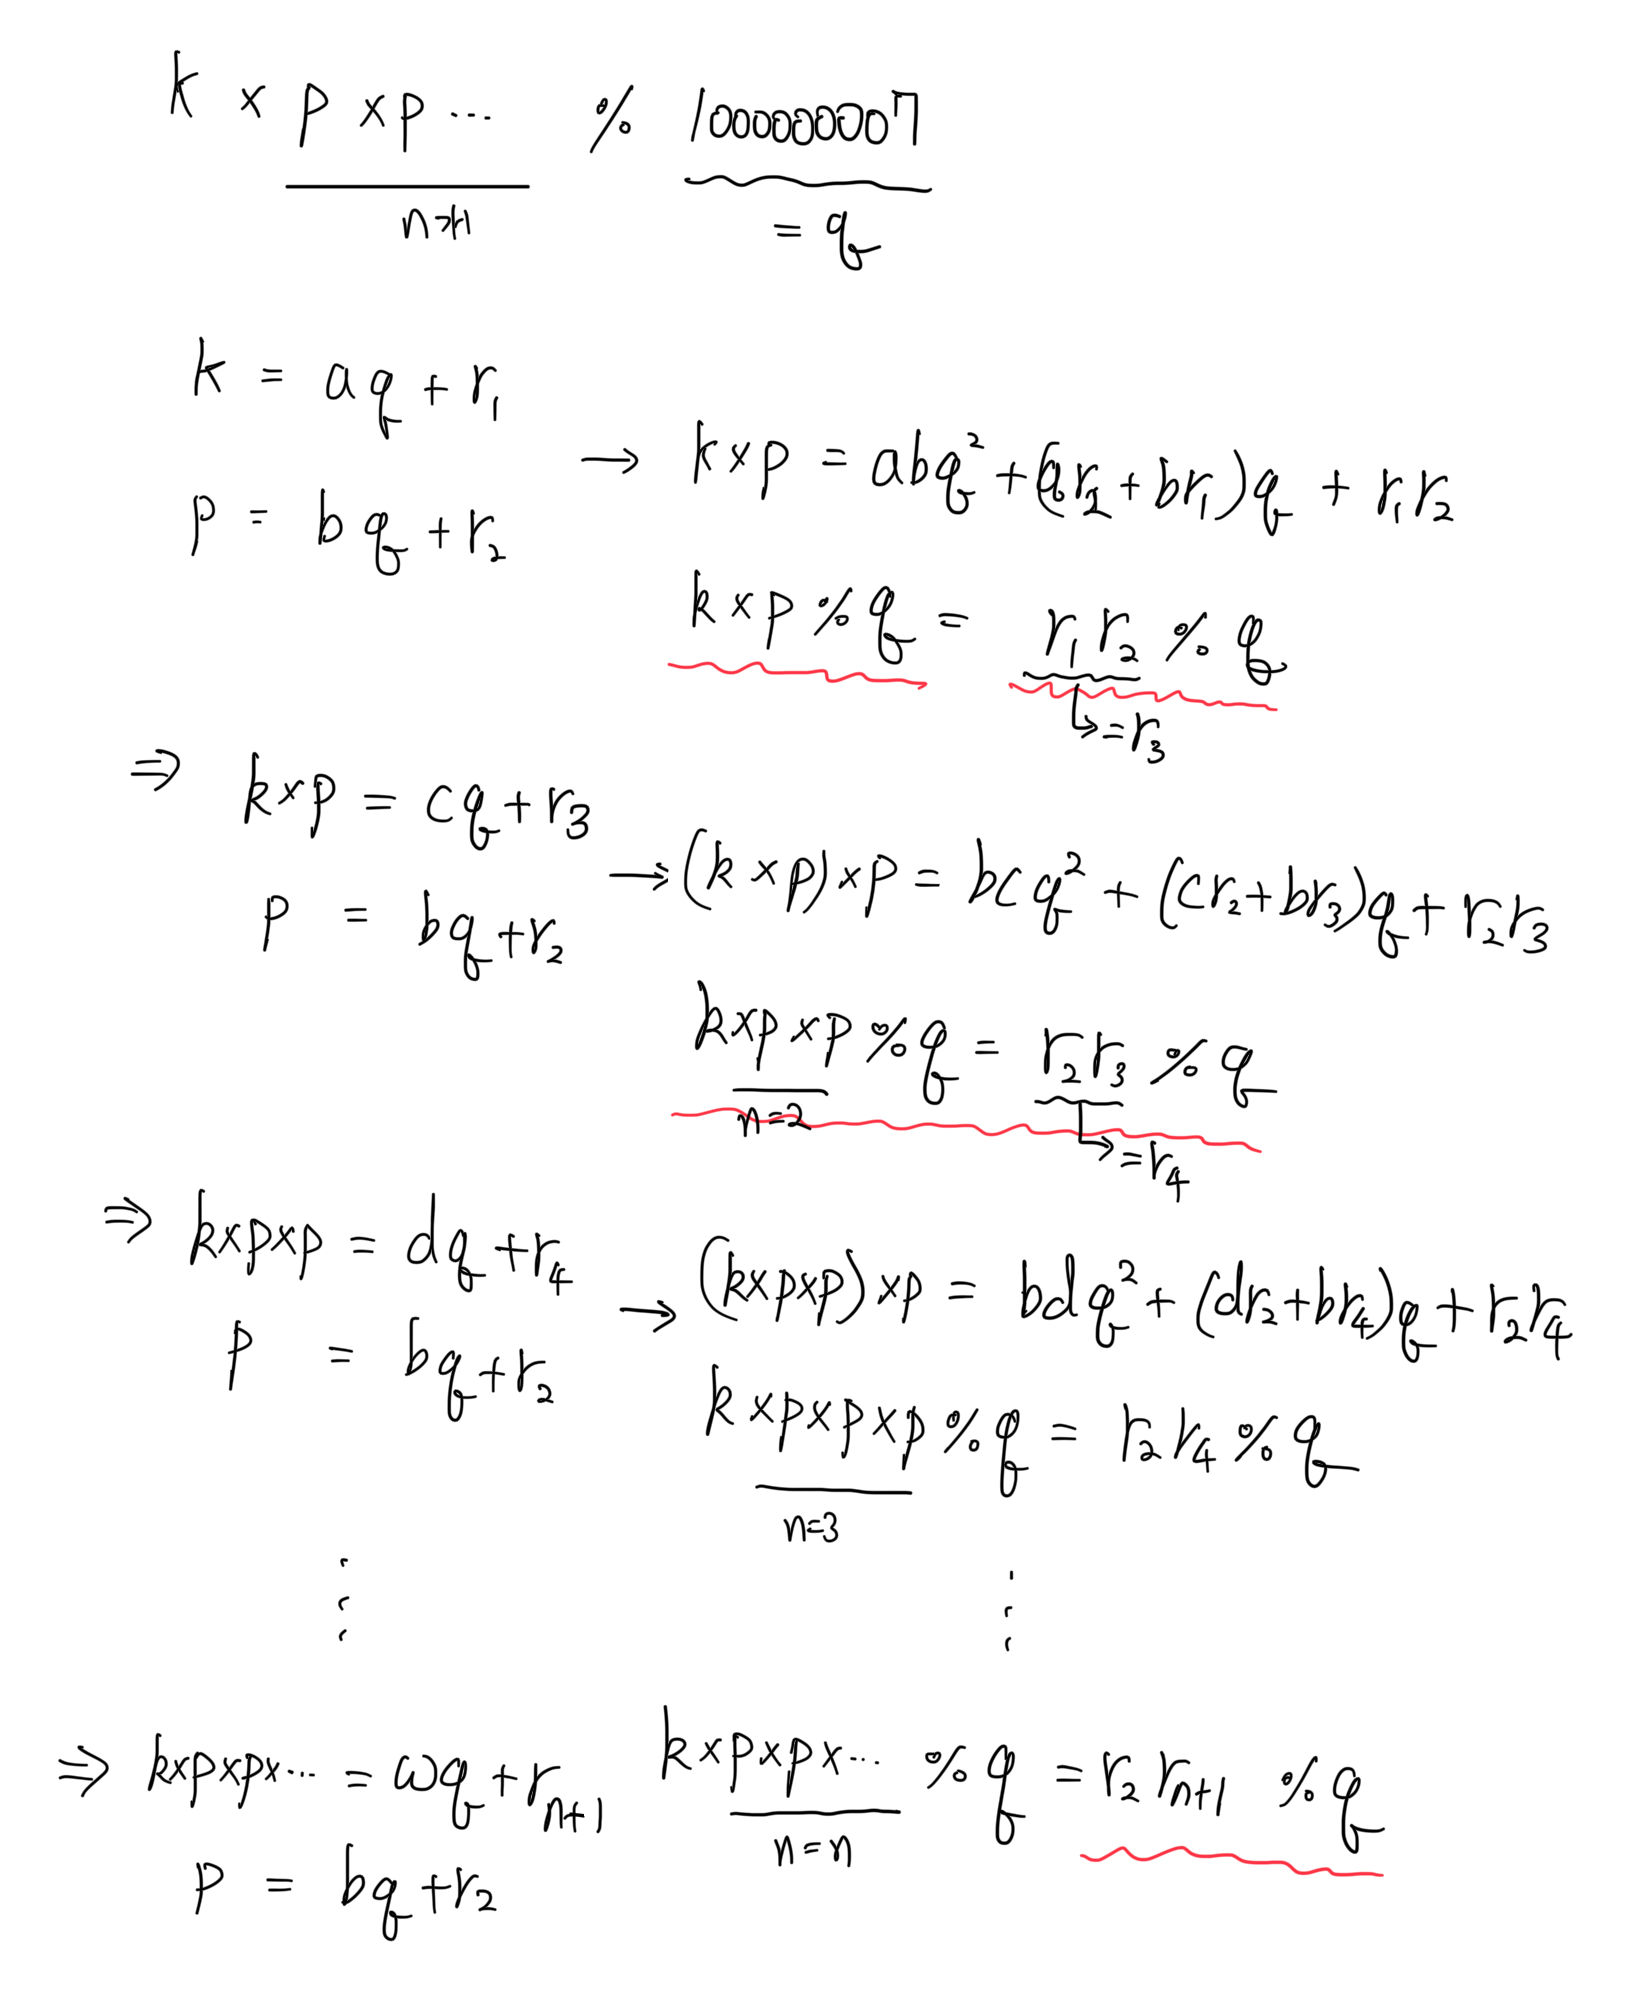 k × p × p ... % 1000000007
n
= q
k = aq + r₁
p = bq + r₂
→ k×p = abq² + (ar₂ + br₁)q + r₁r₂
k×p % q = r₁r₂ % q
↳ = r₃
⇒ k×p = cq + r₃
p = bq + r₂
→ (k×p)×p = bcq² + (cr₂ + br₃)q + r₂r₃
k×p×p % q = r₂r₃ % q
n=2
↳ = r₄
⇒ k×p×p = dq + r₄
p = bq + r₂
→ (k×p×p)×p = bdq² + (dr₂ + br₄)q + r₂r₄
k×p×p×p % q = r₂r₄ % q
n=3
⋮ ⋮
⇒ k×p×p×... = ωq + rₙ₊₁
p = bq + r₂
k×p×p×... % q = r₂rₙ₊₁ % q
n=n